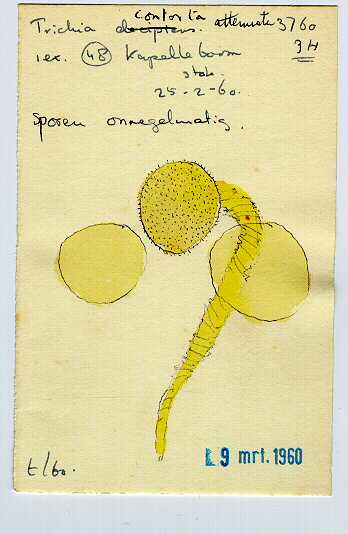 Trichia decipiens. contorta attenuata 3760
1 ex. 48 Kapelleboom 3H
stob.
25-2-60.
Sporen onregelmatig.
t/60.
9 mrt. 1960